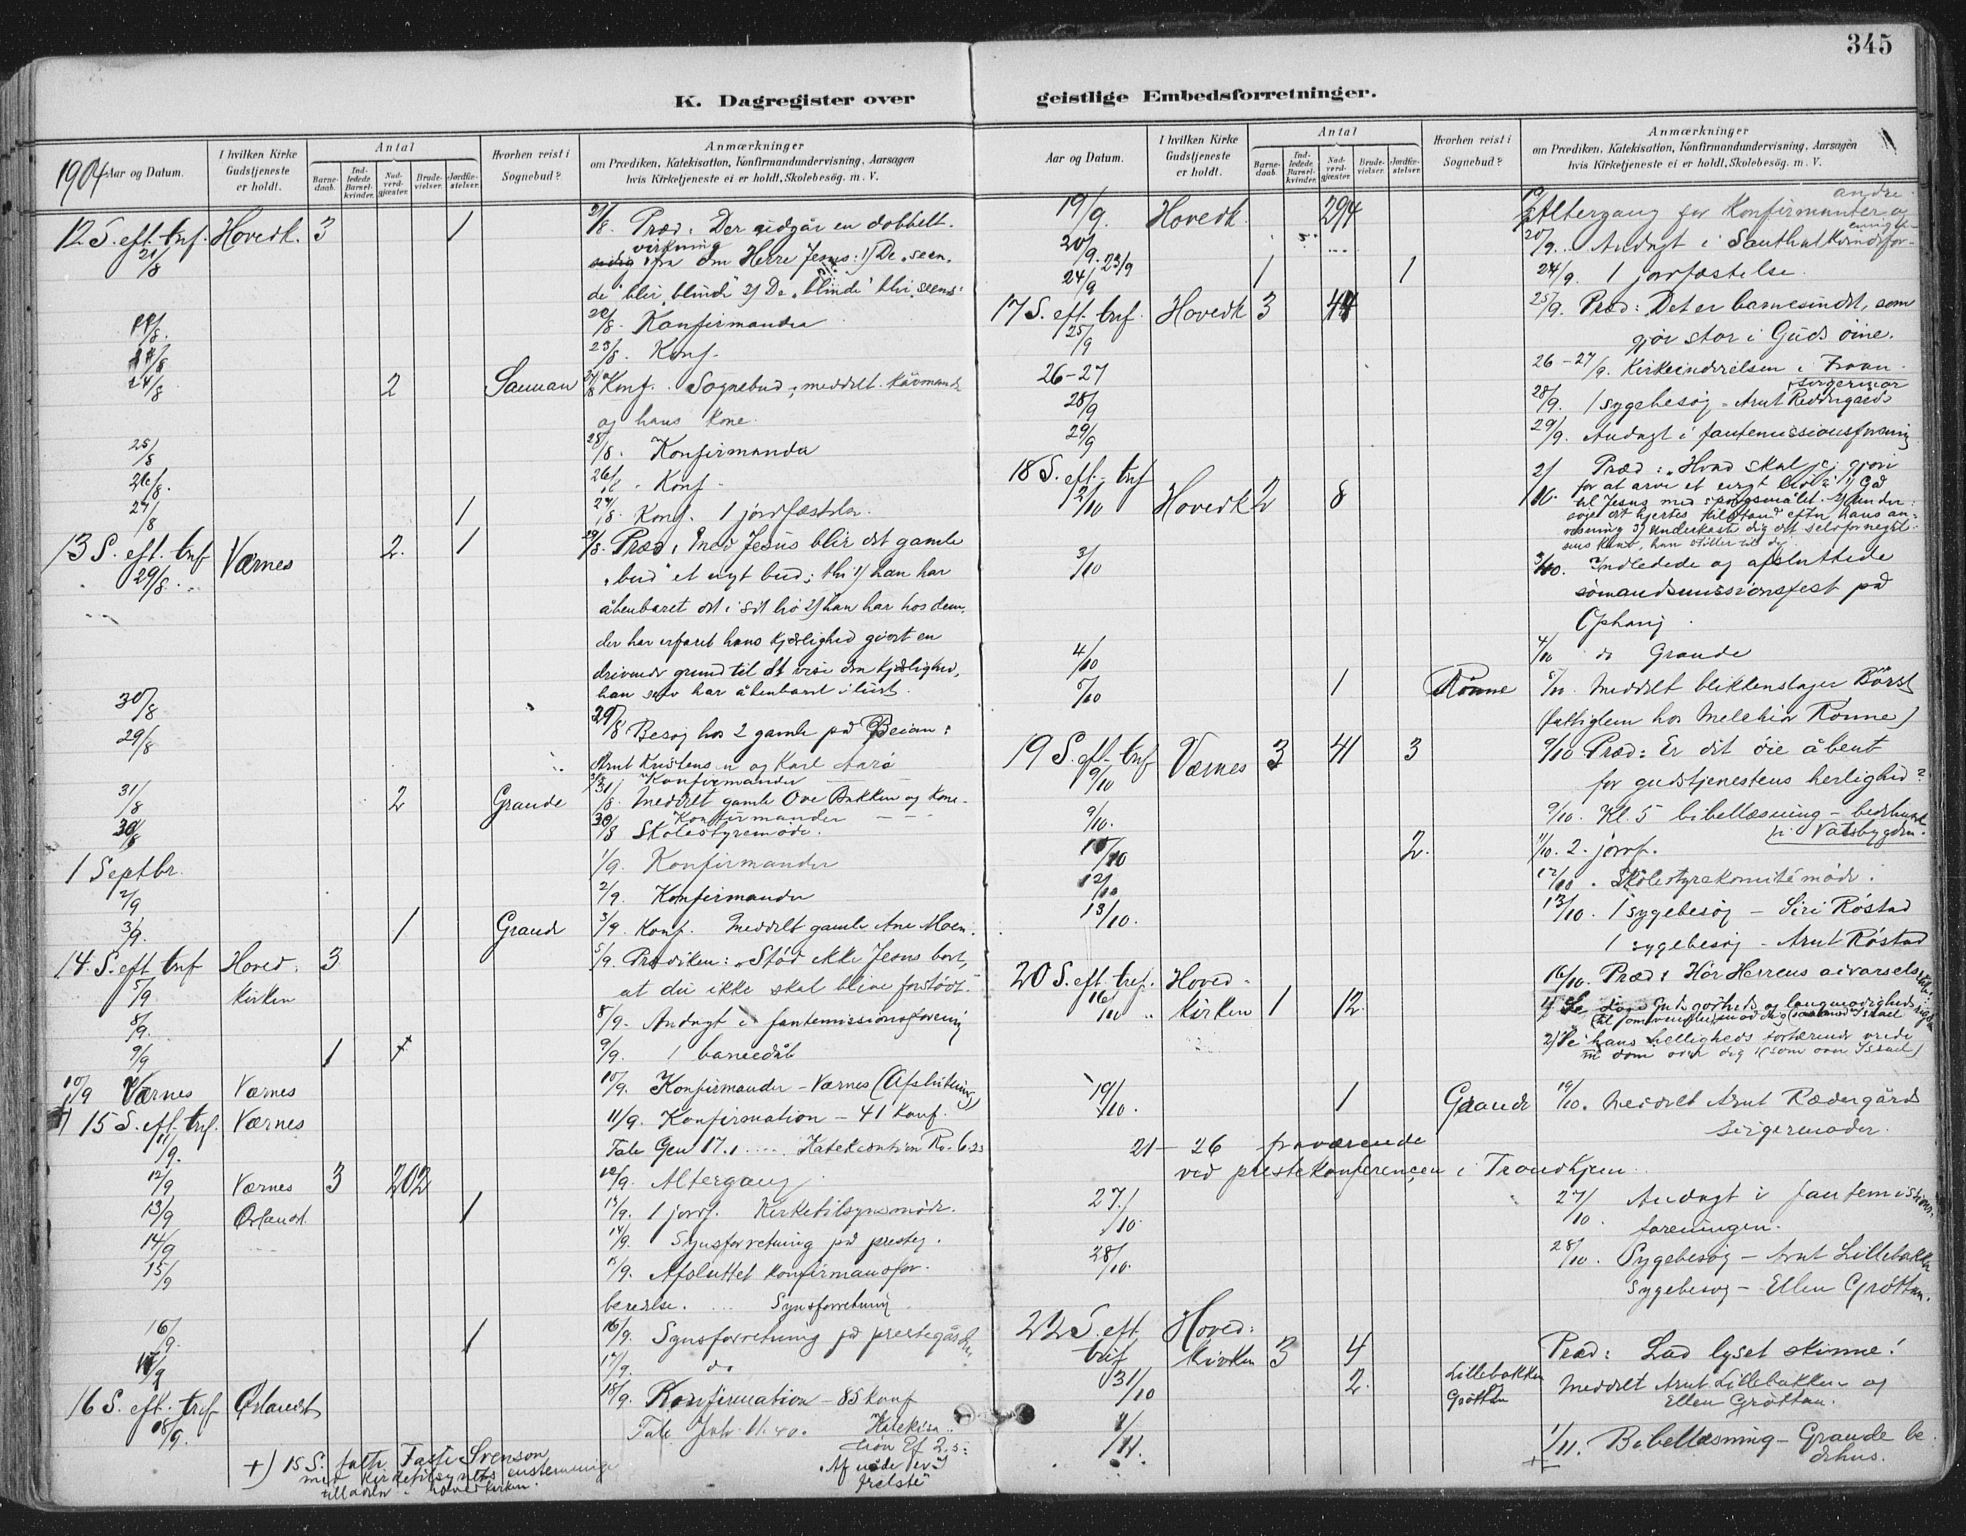 345
K. Dagregister over geistlige Embedsforretninger.
1904 Aar og Datum.
I hvilken Kirke Gudstjeneste er holdt.
Antal
Barnedaab.
Indledede Barselkvinder.
Nadverdgjæster
Brudevielser.
Jordfæstelser.
Hvorhen reist i Sognebud?
Anmærkninger
om Prædiken, Katekisation, Konfirmandundervisning, Aarsagen
hvis Kirketjeneste ei er holdt, Skolebesög. m. V.
12 S. eft. trf. Hovedk. 3 1 21/8. Præd: Der udgår en dobbelt
21/8 virkning fra den Herre Jesus: 1) De "seen-
de" blir "blinde" 2) De "blinde" bli "seende"
22/8. Konfirmander
23/8. Konf.
24/8 2 24/8 Konf. Sognebud; meddelt
og hans kone.
25/8 25/8. Konfirmander
26/8. 26/8. Konf.
27/8 1 27/8. Konf. 1 jordfæstelse.
13 S. eft. trf Værnes 2. 1 Præd: Med Jesus blir det gamle
29/8. "bud" et nyt bud; thi 1) han har
åbenbaret det i sit liv 2) han har hos dem,
der har erfaret hans kjærlighed gjort en
drivende grund til at vise den kjærlighed,
han selv har åbenbaret i livet.
30/8
29/8 29/8. Besøg hos 2 gamle på Beian:
Arnt Kristensen og Karl Aarø
Konfirmander
31/8 2 Grande 31/8. Meddelt gamle Ove Bakken og kone.
Konfirmander
30/8 30/8 Skolestyremøde.
1 Septbr. 1/9. Konfirmander
2/9 2/9. Konfirmander
3/9. 1 Grande 3/9. Konf. Meddelt gamle Ane Moen.
14. S. eft trf Hoved- 3 5/9. Prædiken: "Stød ikke Jesus bort,
5/9. kirken at du ikke skal blive forstødt."
8/9. 8/9. Andagt i santemissionsforening
9/9 1 9/9. 1 barnedåb
10/9 Værnes Værnes 10/9. Konfirmander - Værnes (Afslutning)
15 S. eft. trf. Værnes 11/9. Konfirmation - 41 konf.
11/9. Tale Gen 17.1 ..... Katekisation Ro. 6.23
12/9 Værnes 3 202 12/9. Altergang
13/9 Ørlandet 1 13/9. 1 jordf. Kirketilsynsmøde.
14/9 14/9. Synsforretning på presteg.
15/9 15/9. Afsluttet konfirmandfor-
beredelse. ... Synsforretning
16/9. 1 16/9. Synsforretning på prestegården
17/9 17/9. do
16 S. eft. trf Ørlandet 18/9. Konfirmation - 85 konf
18/9. Tale Joh. 11.40. Katekisa-
tion Ef 2.5:
"Af nåde er I
frelste"
+) 15 S. Svenson
med kirketilsynets enstemmige
tilladelse i hovedkirken.
Aar og Datum.
I hvilken Kirke Gudstjeneste er holdt.
Antal
Barnedaab.
Indledede Barselkvinder.
Nadverdgjæster
Brudevielser.
Jordfæstelser.
Hvorhen reist i Sognebud?
Anmærkninger
om Prædiken, Katekisation, Konfirmandundervisning, Aarsagen
hvis Kirketjeneste ei er holdt, Skolebesög. m. V.
19/9. Hovedk. 294 Altergang for konfirmanter og andre
20/9. 20/9. Andagt i
24/9 23/9 1 1 24/9. 1 jordfæstelse.
17 S. eft. trf. Hovedk 3 44 25/9. Præd: Det er barnesindet, som
25/9 gjør stor i Guds øine.
26-27 26-27/9. Kirkeindvielsen i Froan.
28/9 28/9. 1 sygebesøg - Arnt
29/9 29/9. Andagt i santemissionsforening
18 S. eft. trf 2/10. Præd: "Hvad skal jeg gjøre
2/10 Hovedk 2 8 for at arve et evigt liv": 1) Gå
til Jesus med spørgsmålet. 2) under-
søge dit hjertes tilstand efter hans an-
visning 3) underkaste dig det selvfornegtel-
sens krav, han stiller til dig
3/10 3/10. Indledede og afsluttede
sømandsmissionsfest på
Ophaug.
4/10 4/10 do Grande
5/10 1 Rønne Meddelt blikkenslager Börst
(fattiglem hos Melchior Rønne)
19 S. eft. trf Værnes 3 41 3 9/10 Præd: Er dit øie åbent
9/10 for gudstjenestens herlighed?
9/10. 9/10. Kl. 5 bibellæsning - bedehuset
i Vatsbygden.
2. 2. jordf.
12/10 12/10. Skolestyrekomitémøde.
13/10. 13/10. 1 sygebesøg - Siri Røstad
1 sygebesøg - Arnt Røstad
20 S. eft. trf. Hoved- 16/10. Præd: Hør Herrens advarsels
16/10 kirken 1 12. 1) Se Guds godheds og langmodigheds
2) Se hans helligheds fortærende vrede
dom over dig (som over Israel)
19/10. 1 Grande 19/10. Meddelt Arnt Rædergårds
svigermoder.
21 - 26 fraværende
ved prestekonferencen i Trondhjem.
27/10. 27/10. Andagt i santemissions-
foreningen.
28/10. 28/10. Sygebesøg - Arnt Lillebakken
Sygebesøg - Ellen Grøttan.
22 S. eft. Hoved-
trf kirken 3 4 Præd: Lad lyset skinne!
31/10 2. Lillebakken Grøttan Meddelt Arnt Lillebakken og
Ellen Grøttan.
1/11. 1/11. Bibellæsning - Grande be-
dehus.